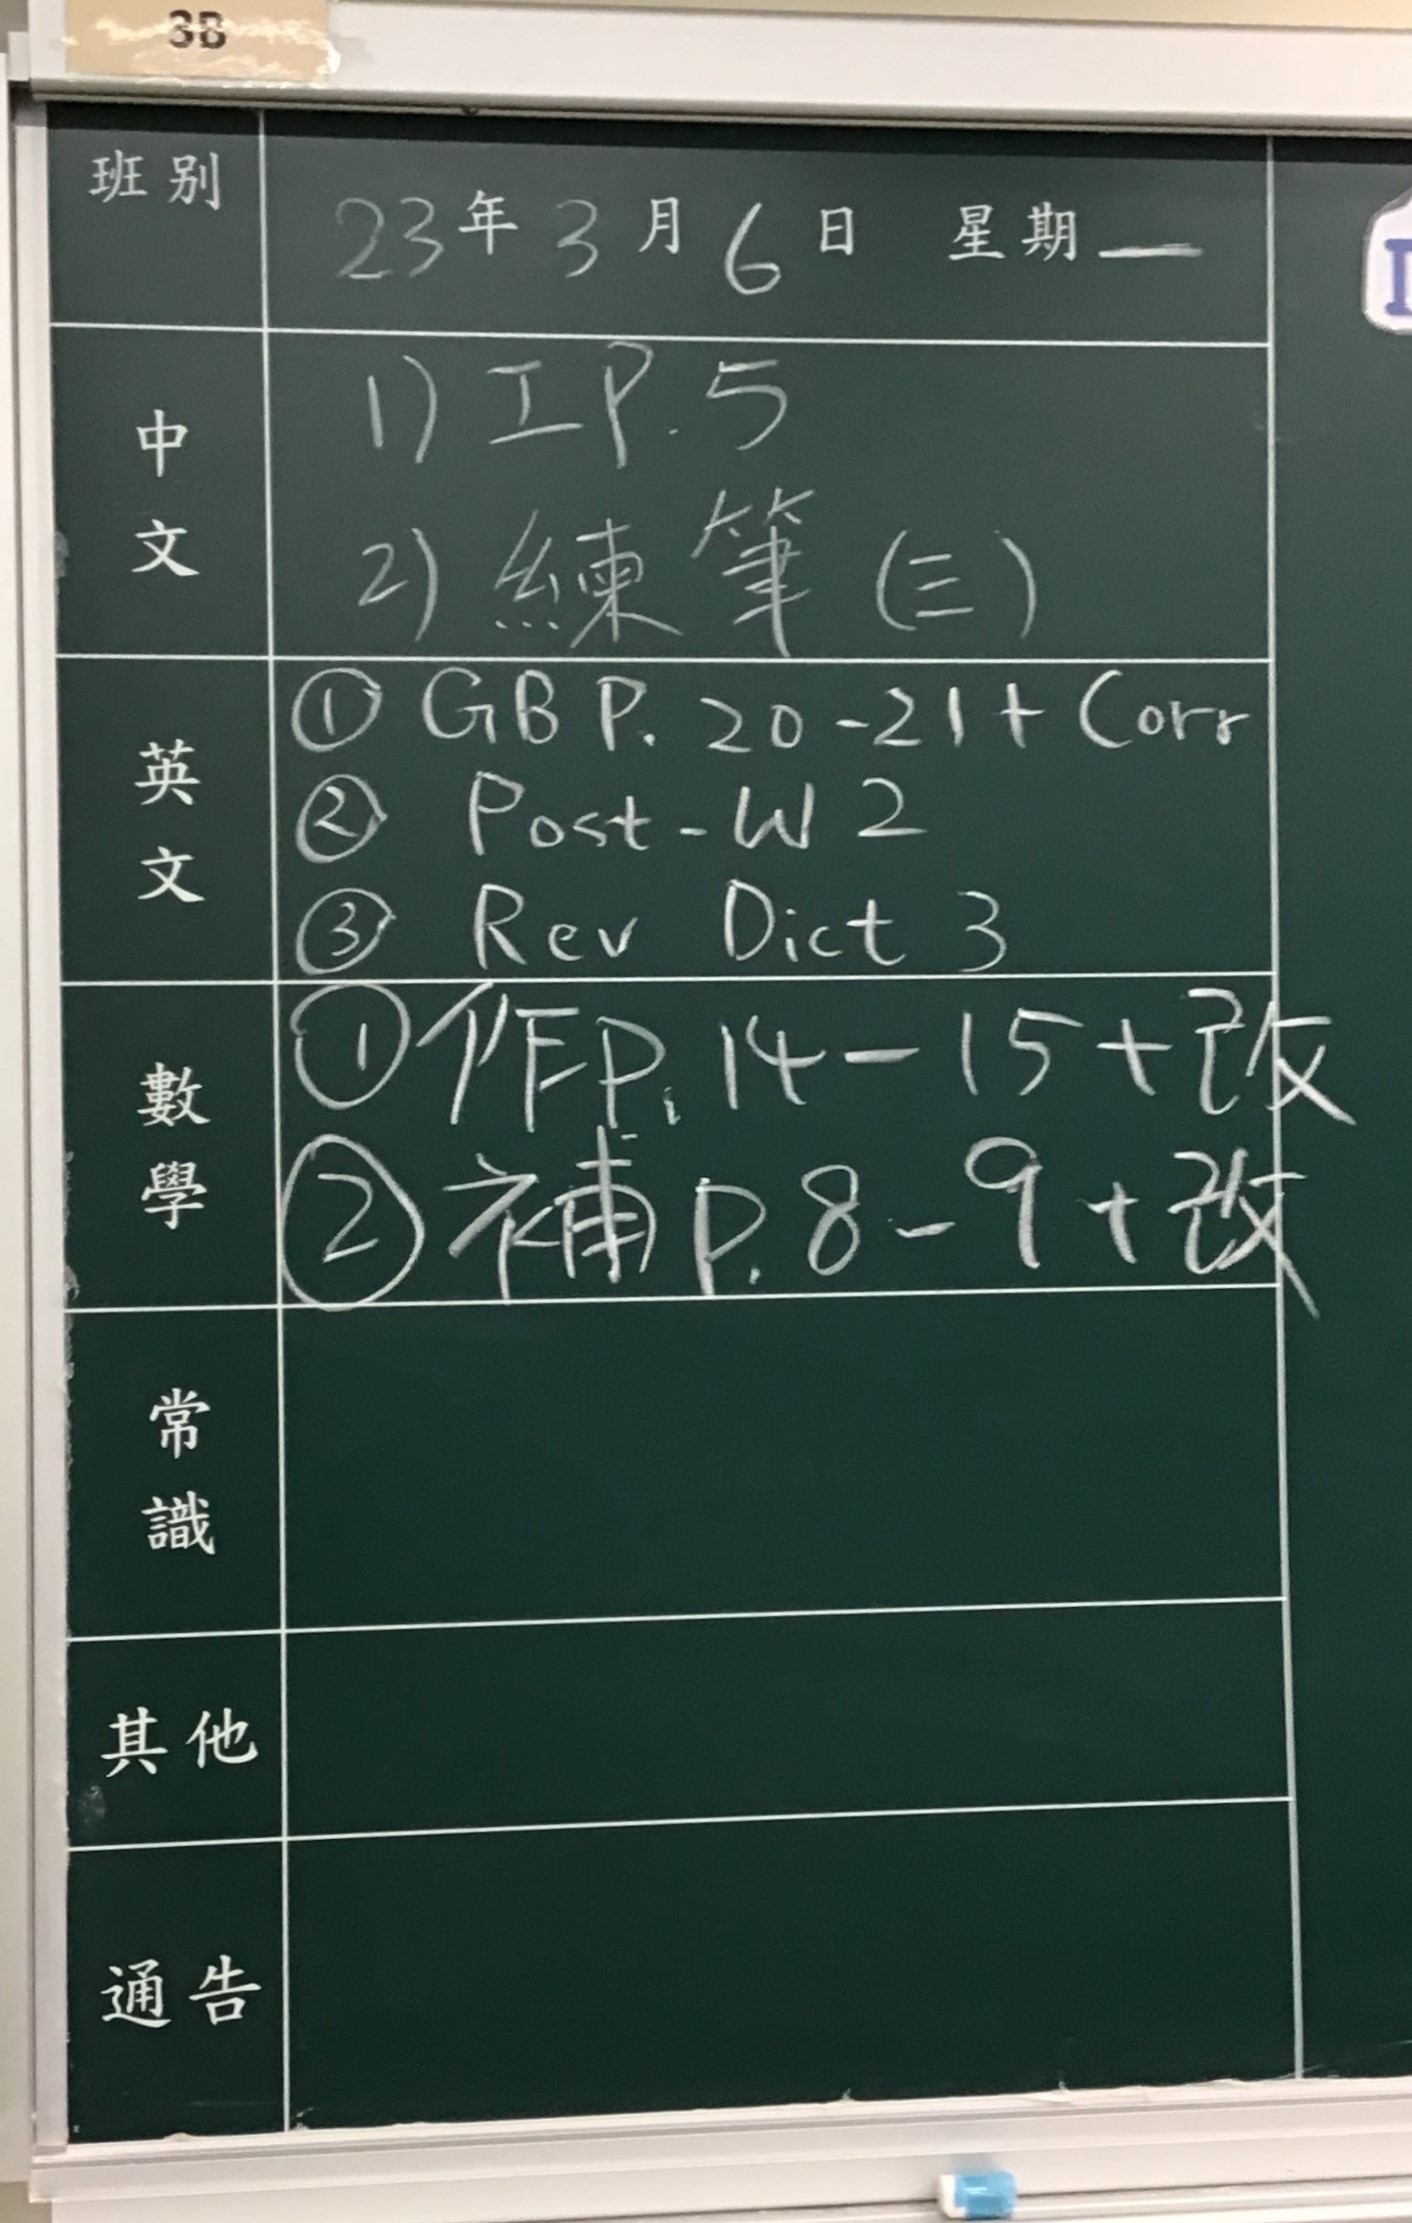 3B
班別
23年3月6日 星期一
中文
1) 工P.5
2) 練筆(三)
英文
① GB P. 20-21+Corr
② Post-W2
③ Rev Dict 3
數學
① 作P.14-15+改
② 補P.8-9+改
常識
其他
通告